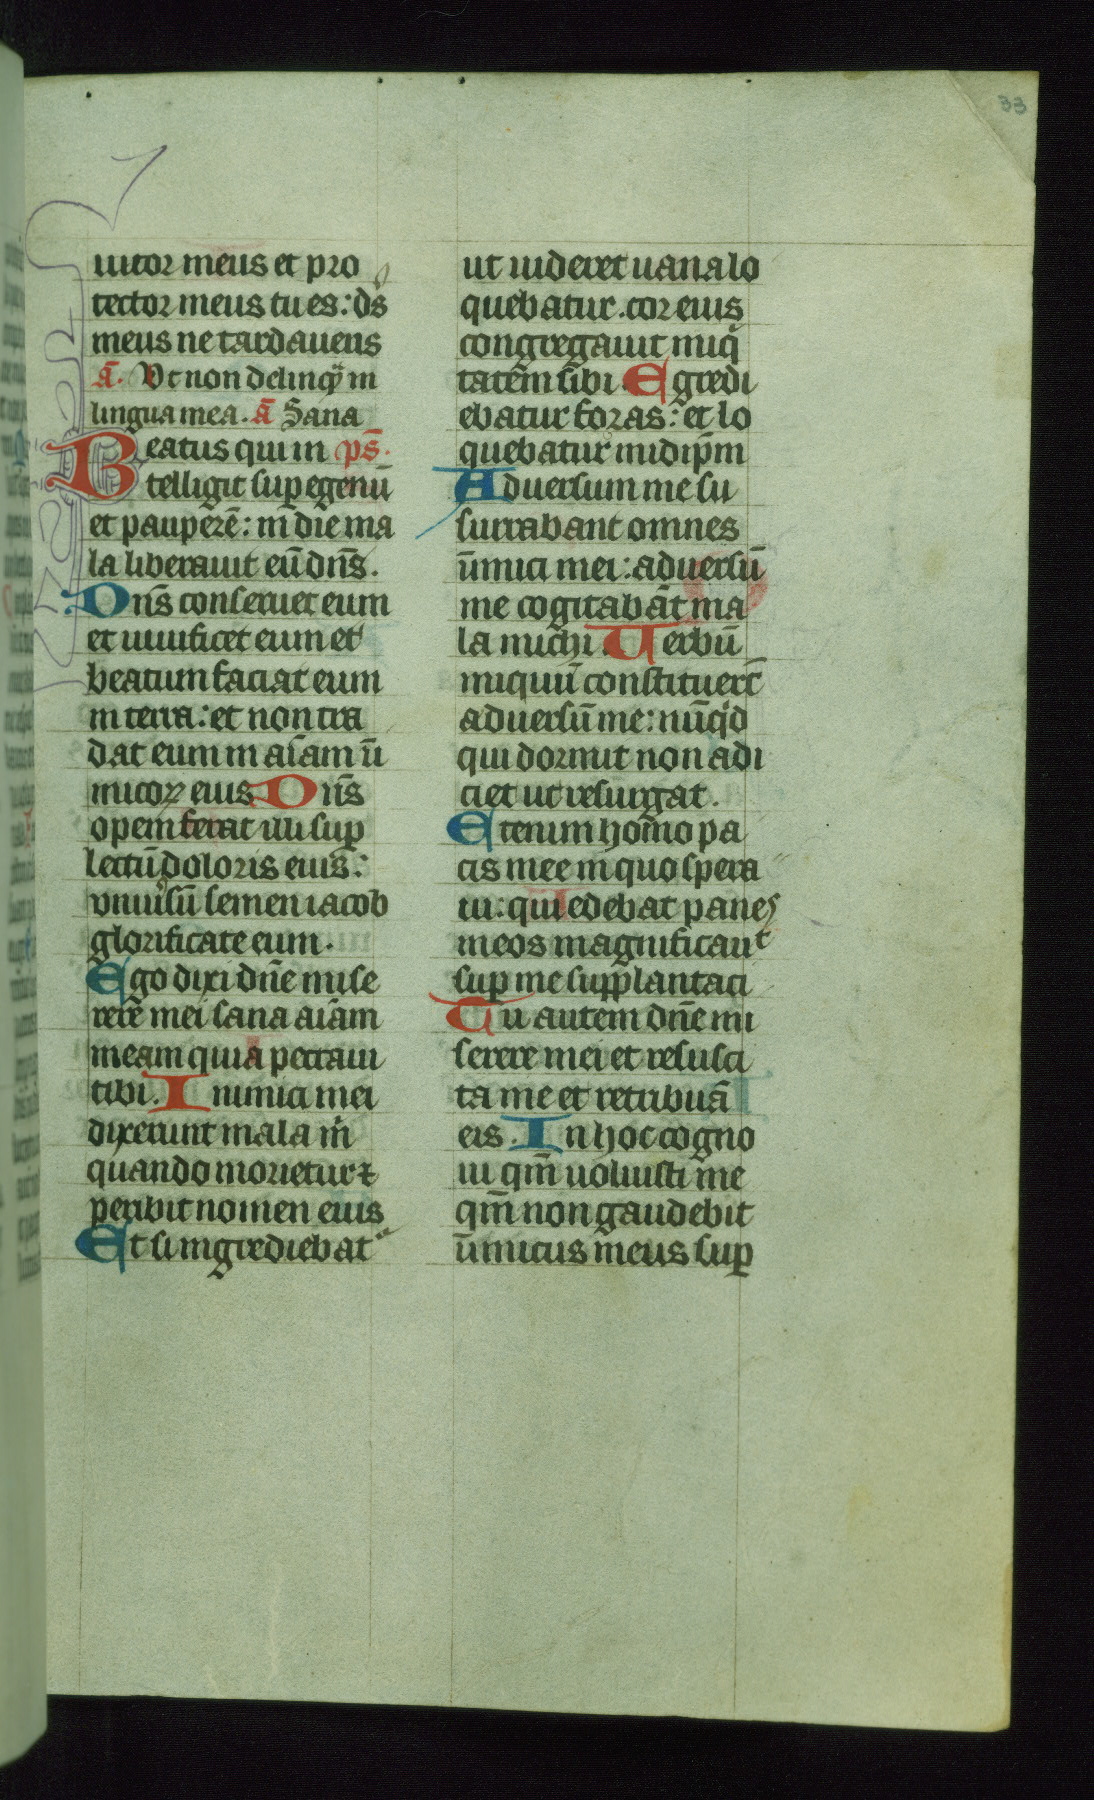 33
iutor meus et pro
tector meus tu es: ds̄
meus ne tardaueris
Ā. Vt non delinqͣm in
lingua mea. Ā Sana
Beatus qui in ps̄.
telligit sup egenū
et pauperē: in die ma
la liberauit eū dn̄s.
Dn̄s conseruet eum
et uiuificet eum et
beatum faciat eum
in terra: et non tra
dat eum in aīam ī
nimicoꝝ eius Dn̄s
opem ferat illi suꝑ
lectū doloris eius:
vniuᵉsū semen iacob
glorificate eum.
Ego dixi dn̄e mise
rere mei sana aīam
meam quia peccaui
tibi. Inimici mei
dixerunt mala m̄
quando morietur ⁊
peribit nomen eius
Et si ingrediebatᵘʳ
ut uideret uana lo
quebatur. cor eius
congregauit iniq̄
tatem sibi. Egredi
ebatur foras: et lo
quebatur in idip̄m
Aduersum me su
surrabant omnes
īnimici mei: aduersū
me cogitabāt ma
la michi. Uerbū
iniquū constituerūt
aduersū me: nūqͥd
qui dormit non adi
ciet ut resurgat.
Etenim homo pa
cis mee in quo spera
ui: qui edebat panes
meos magnificauit
suꝑ me supplantaci
Tu autem dn̄e mi
serere mei et resusci
ta me et retribuā
eis. In hoc cogno
ui qm̄ uoluisti me
qm̄ non gaudebit
īnimicus meus suꝑ